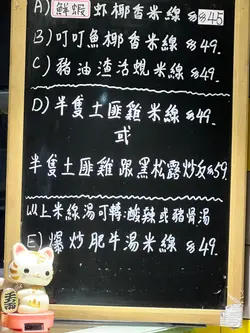 A) 鮮蝦 蝦椰香米線 $45
B) 叮叮魚椰香米線 $49.
C) 豬油渣活蜆米線 $49.
D) 半隻土匪雞米線 $49.
或
半隻土匪雞跟黑松露炒女 $59
以上米線湯可轉:酸辣或豬骨湯
E) 爆炒肥牛湯米線 $49.